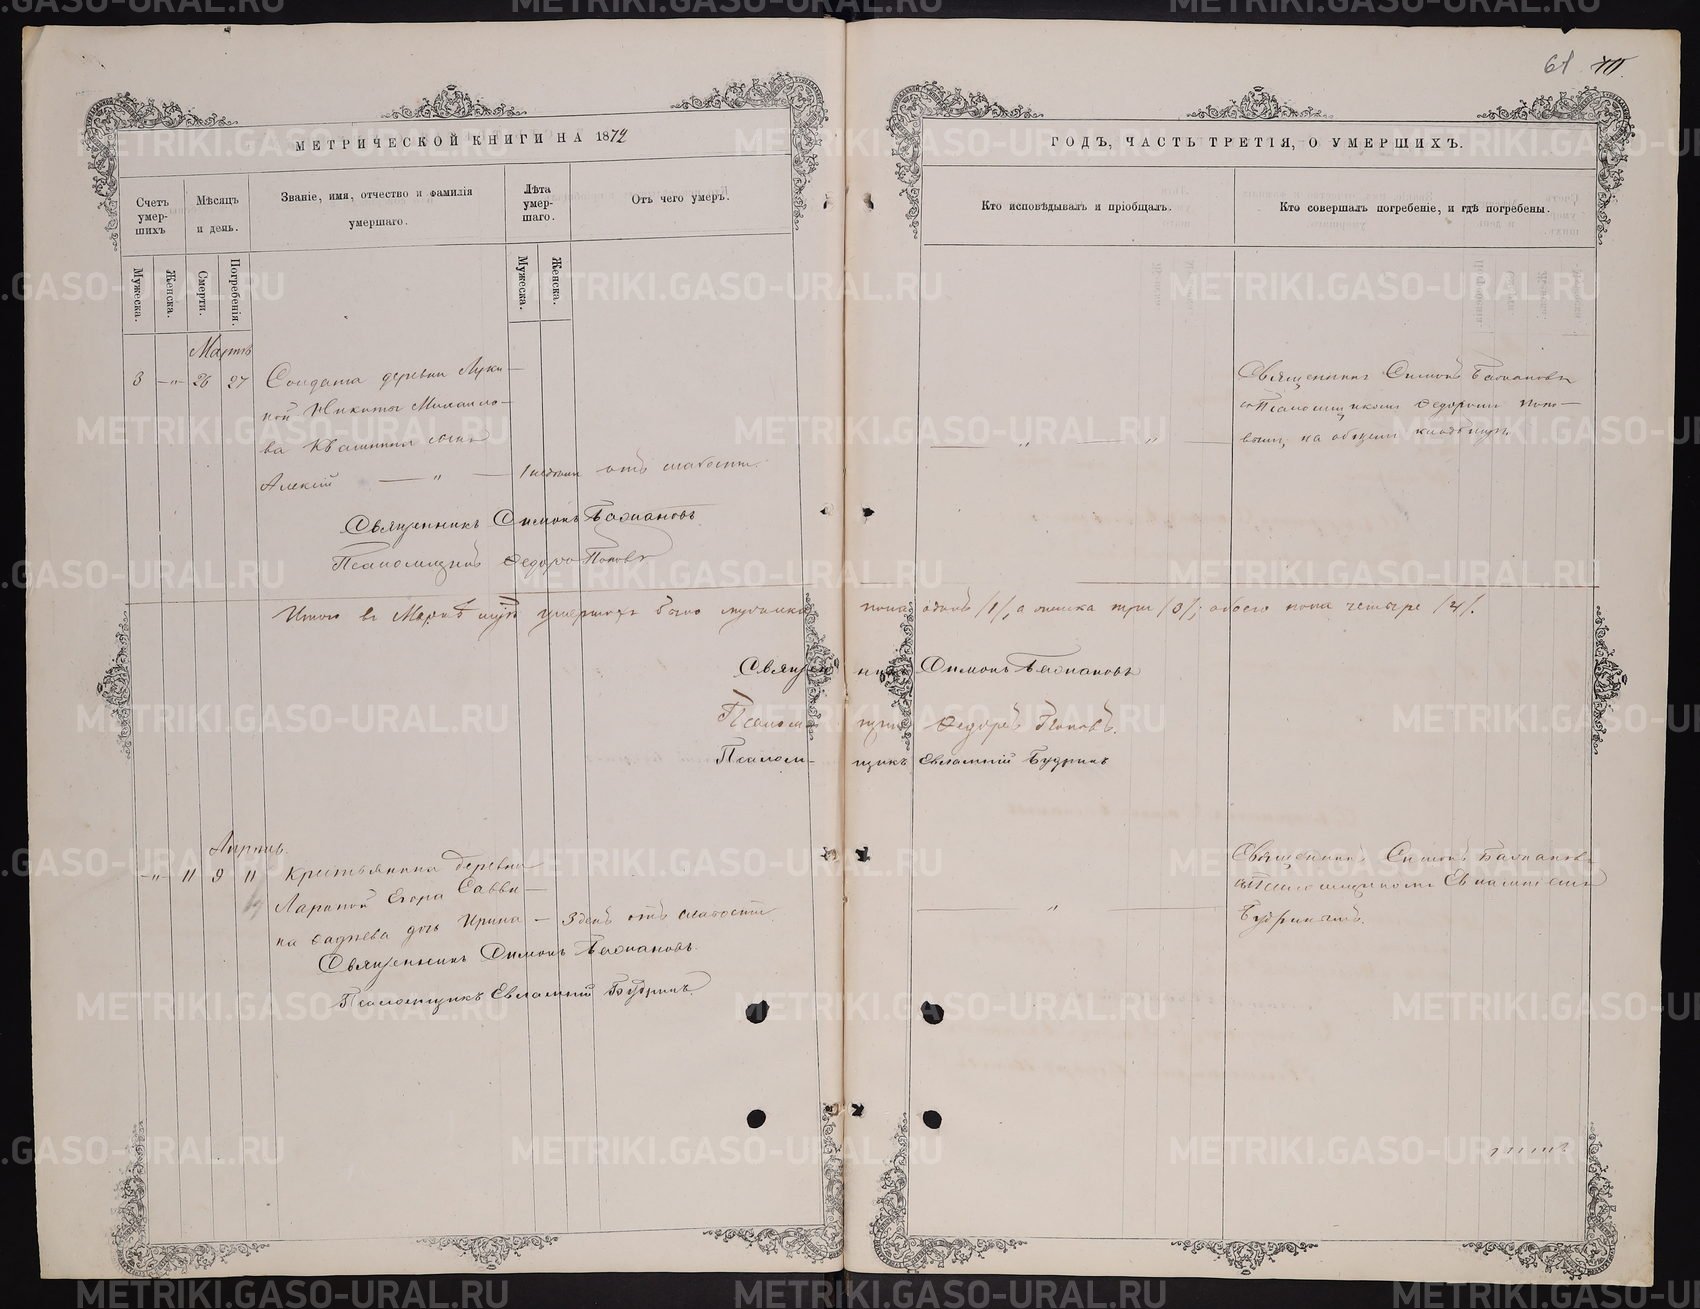 61
МЕТРИЧЕСКОЙ КНИГИ НА 1872
ГОДЪ, ЧАСТЬ ТРЕТІЯ, О УМЕРШИХЪ.
Счетъ умершихъ
Мѣсяцъ и день.
Званіе, имя, отчество и фамилія умершаго.
Лѣта умершаго.
Отъ чего умеръ.
Кто исповѣдывалъ и пріобщалъ.
Кто совершалъ погребеніе, и гдѣ погребены.
Мужеска.
Женска.
Смерти.
Погребенія.
Мужеска.
Женска.
Мартъ
3 — 26 27 Солдата деревни Луки
ной Никиты Михаило-
ва сынъ
Алексій 1 недели отъ слабости.
Священникъ Симонъ
съ Псаломщикомъ Федоромъ Попо-
вымъ, на общемъ кладбищѣ.
Священникъ Симонъ
Псаломщикъ Федоръ Поповъ
Итого въ Мартѣ м-цѣ умершихъ было мужеска пола одинъ /1/, а женска три /3/; обоего пола четыре /4/.
Священникъ Симонъ
Псаломщикъ Федоръ Поповъ.
Псаломщикъ Евлампій Будринъ
Апрѣль.
— 11 9 11 Крестьянина деревни
Лариной Егора Савви-
на дочь Ирина — 3 день отъ слабости.
Священникъ Симонъ
съ Псаломщикомъ Евлампіемъ
Будринымъ.
Священникъ Симонъ
Псаломщикъ Евлампій Будринъ.
METRIKI.GASO-URAL.RU